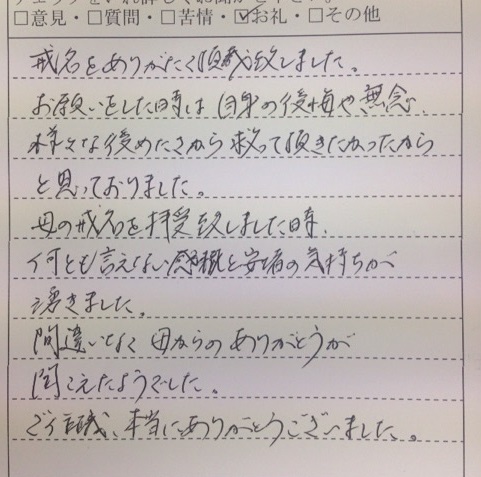 □意見・□質問・□苦情・☑お礼・□その他
戒名をありがたく頂戴致しました。
お願いをした時は 自身の後悔や無念、
様々な後めたさから救って頂きたかったから
と思っておりました。
母の戒名を拝受致しました時、
何とも言えない感慨と安堵の気持ちが
湧きました。
間違いなく 母からの ありがとうが
聞こえたようでした。
ご住職、本当にありがとうございました。